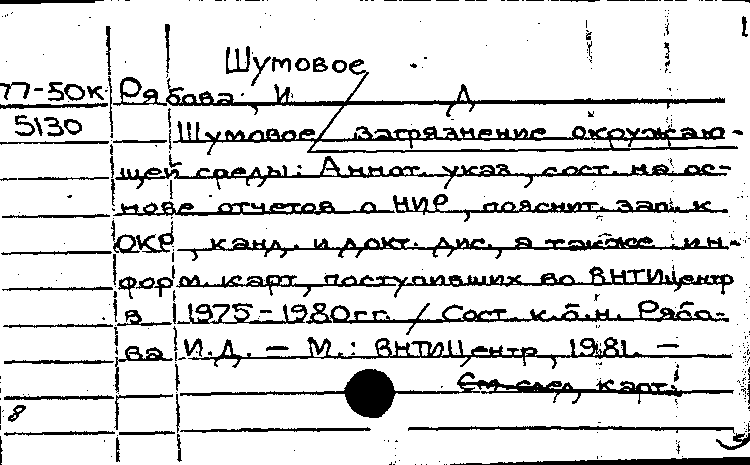 Шумовое
77-50к Рябова, И Д
5130 Шумовое загрязнение окружаю-
щей среды: Аннот. указ., сост. на ос-
нове отчетов о НИР, пояснит. зап. к
ОКР, канд. и докт. дис., а также ин-
форм. карт, поступивших во ВНТИЦентр
в 1975-1980гг. / Сост. к.б.н. Рябо-
ва И.Д. — М.: ВНТИЦентр, 1981. —
См. след. карт.
8